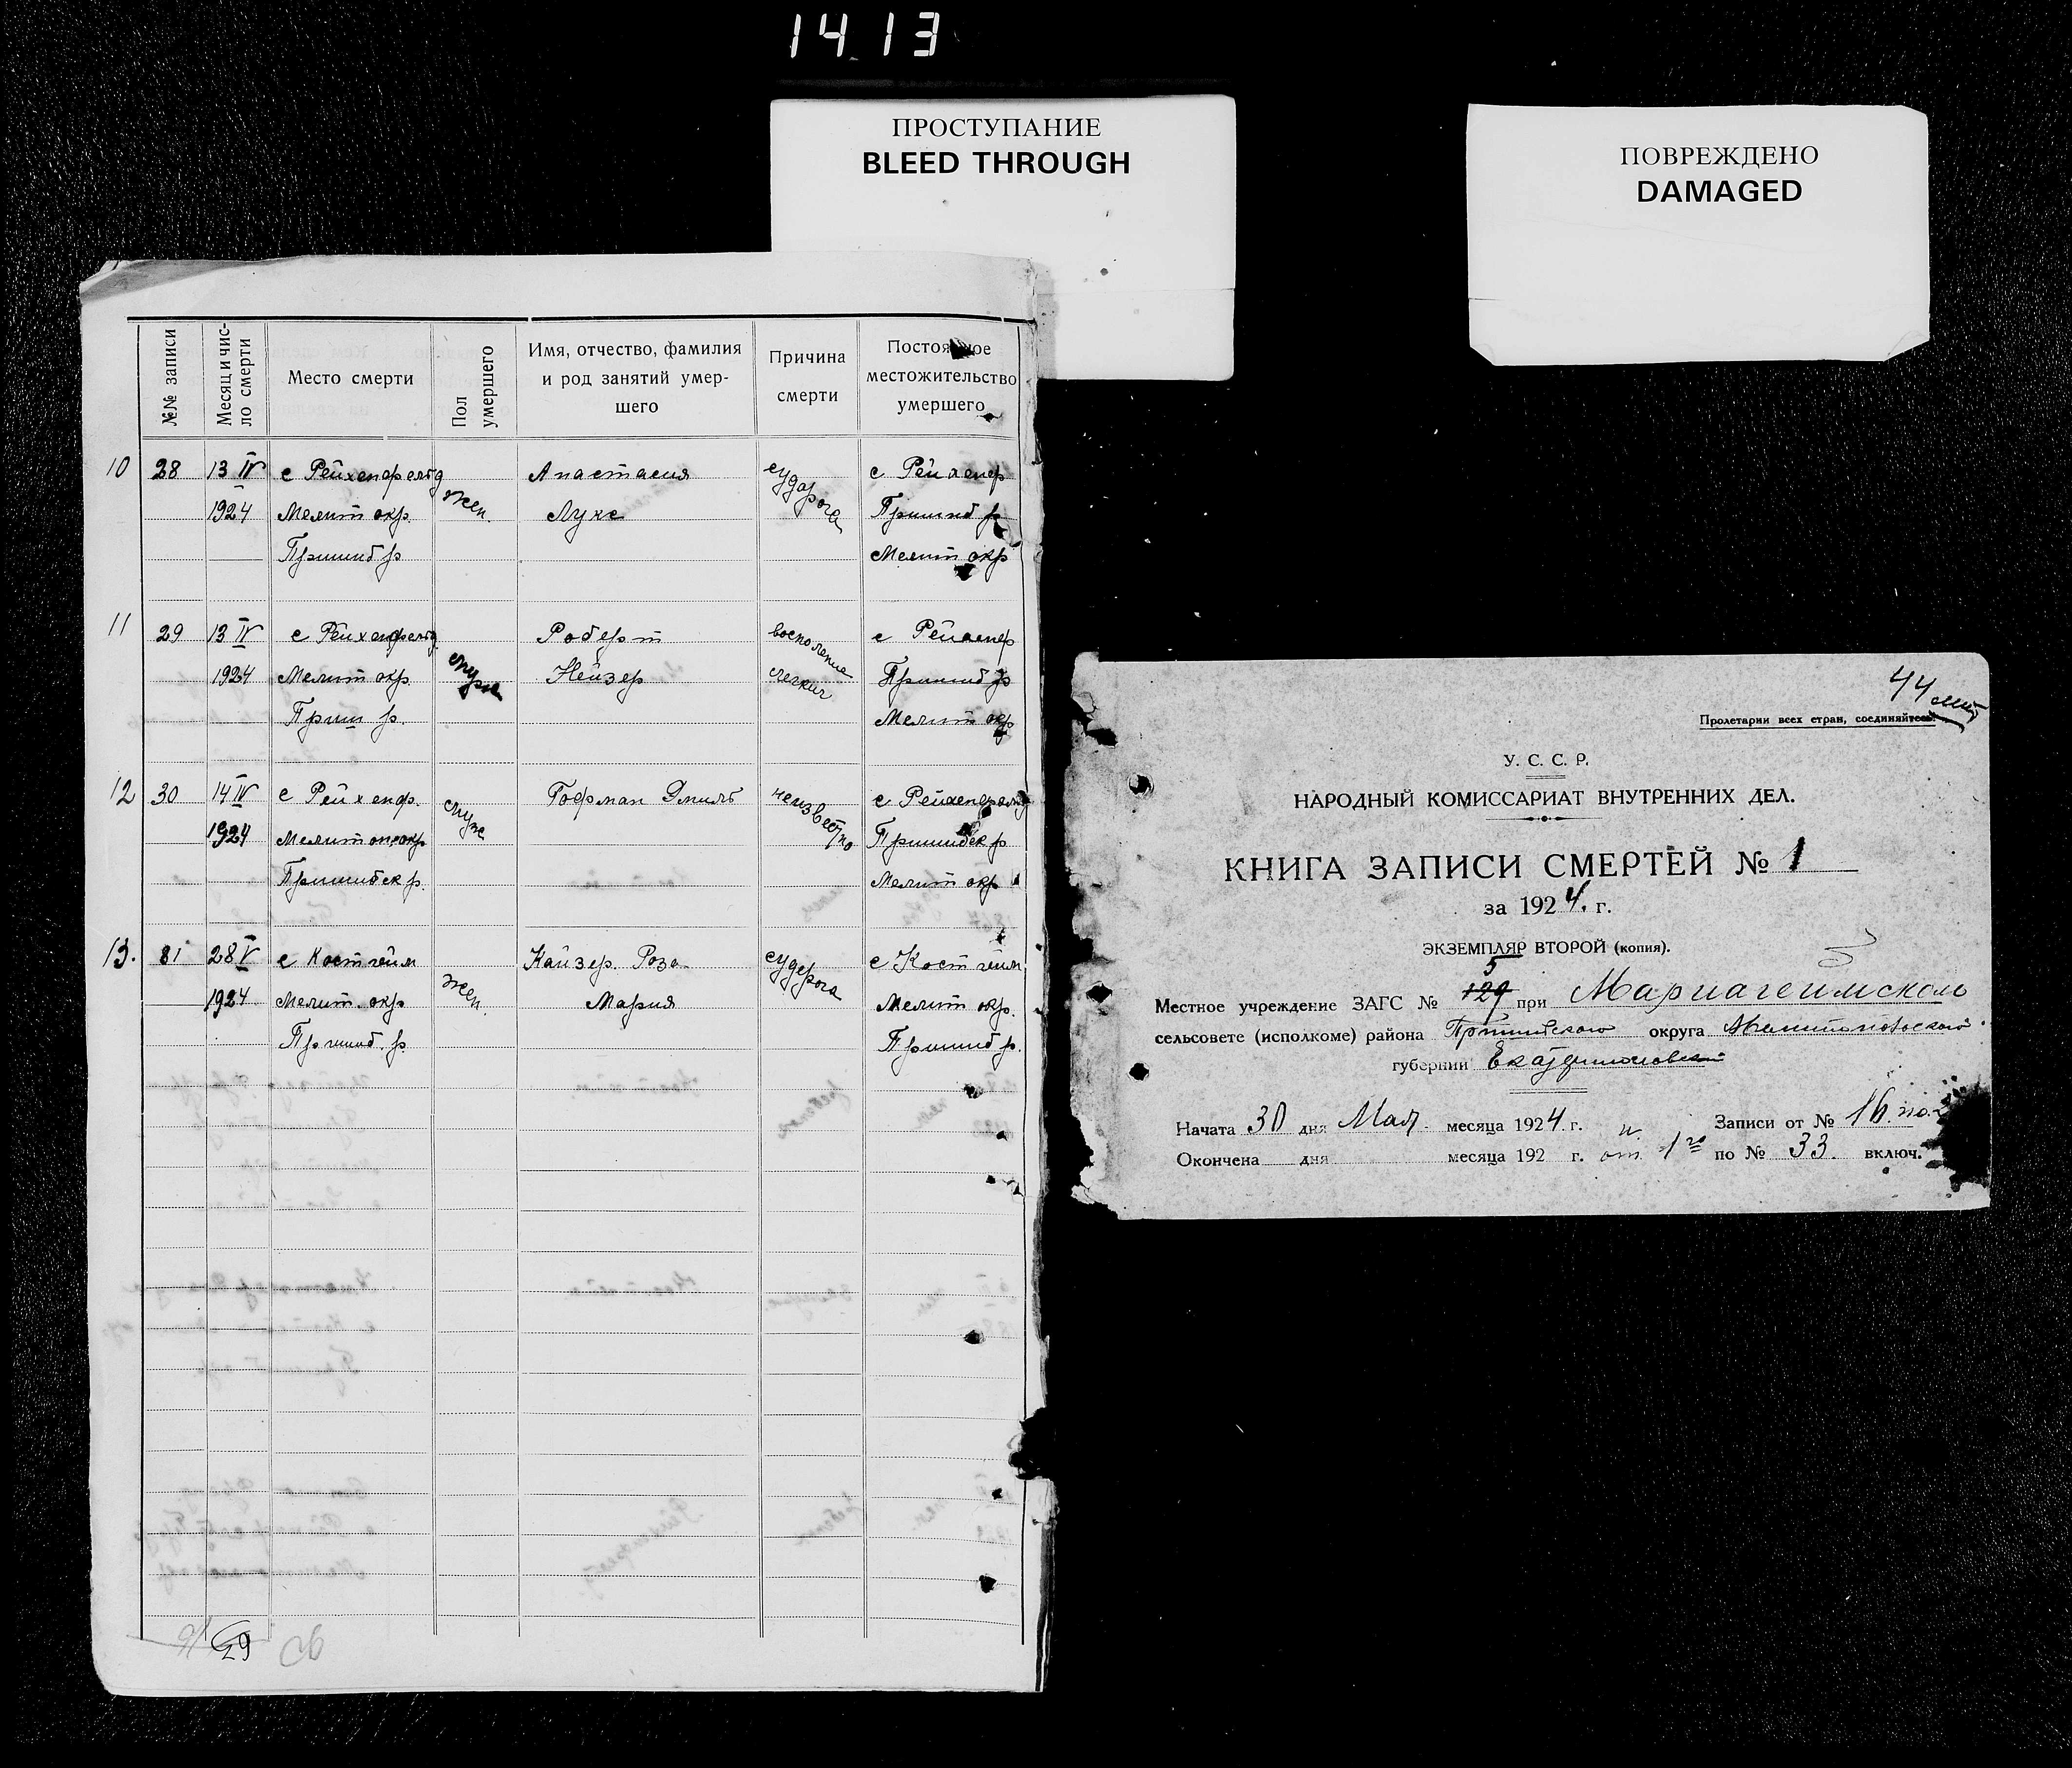 1413
ПРОСТУПАНИЕ
BLEED THROUGH
ПОВРЕЖДЕНО
DAMAGED
№№ записи Месяц и чис-ло смерти Место смерти Пол умершего Имя, отчество, фамилия и род занятий умер-шего Причина смерти Постоянное местожительство умершего
10 28 13 IV с Рейхенфельд жен. Анастасия судорога с Рейхенф
1924 Мелит окр. Лукс Пришиб р
Пришиб р Мелит окр
11 29 13 IV с Рейхенфельд муж Роберт восполение с Рейхенф
1924 Мелит окр. Нейзер легких Пришиб р
Приш р. Мелит окр
12 30 14 IV с Рейхенф. муж Гофман Эмиль неизвестно с Рейхенфельд
1924 Мелитоп окр Пришибск р
Пришибск р. Мелит окр
13. 31 28 V с Костгейм жен. Кайзер Роза судорога с Костгейм
1924 Мелит. окр Мария Мелит окр.
Пришиб. р. Пришиб р.
29
44
Пролетарии всех стран, соединяйтесь!
У. С. С. Р.
НАРОДНЫЙ КОМИССАРИАТ ВНУТРЕННИХ ДЕЛ.
КНИГА ЗАПИСИ СМЕРТЕЙ № 1
за 1924. г.
ЭКЗЕМПЛЯР ВТОРОЙ (копия).
5
Местное учреждение ЗАГС № 129 при Мариагеимском
сельсовете (исполкоме) района Пришибского округа Мелитопольского
губернии Екатеринославской
Начата 30 дня Мая месяца 1924 г. Записи от № 16 по
Окончена дня месяца 192 г. и от 1го по № 33. включ.